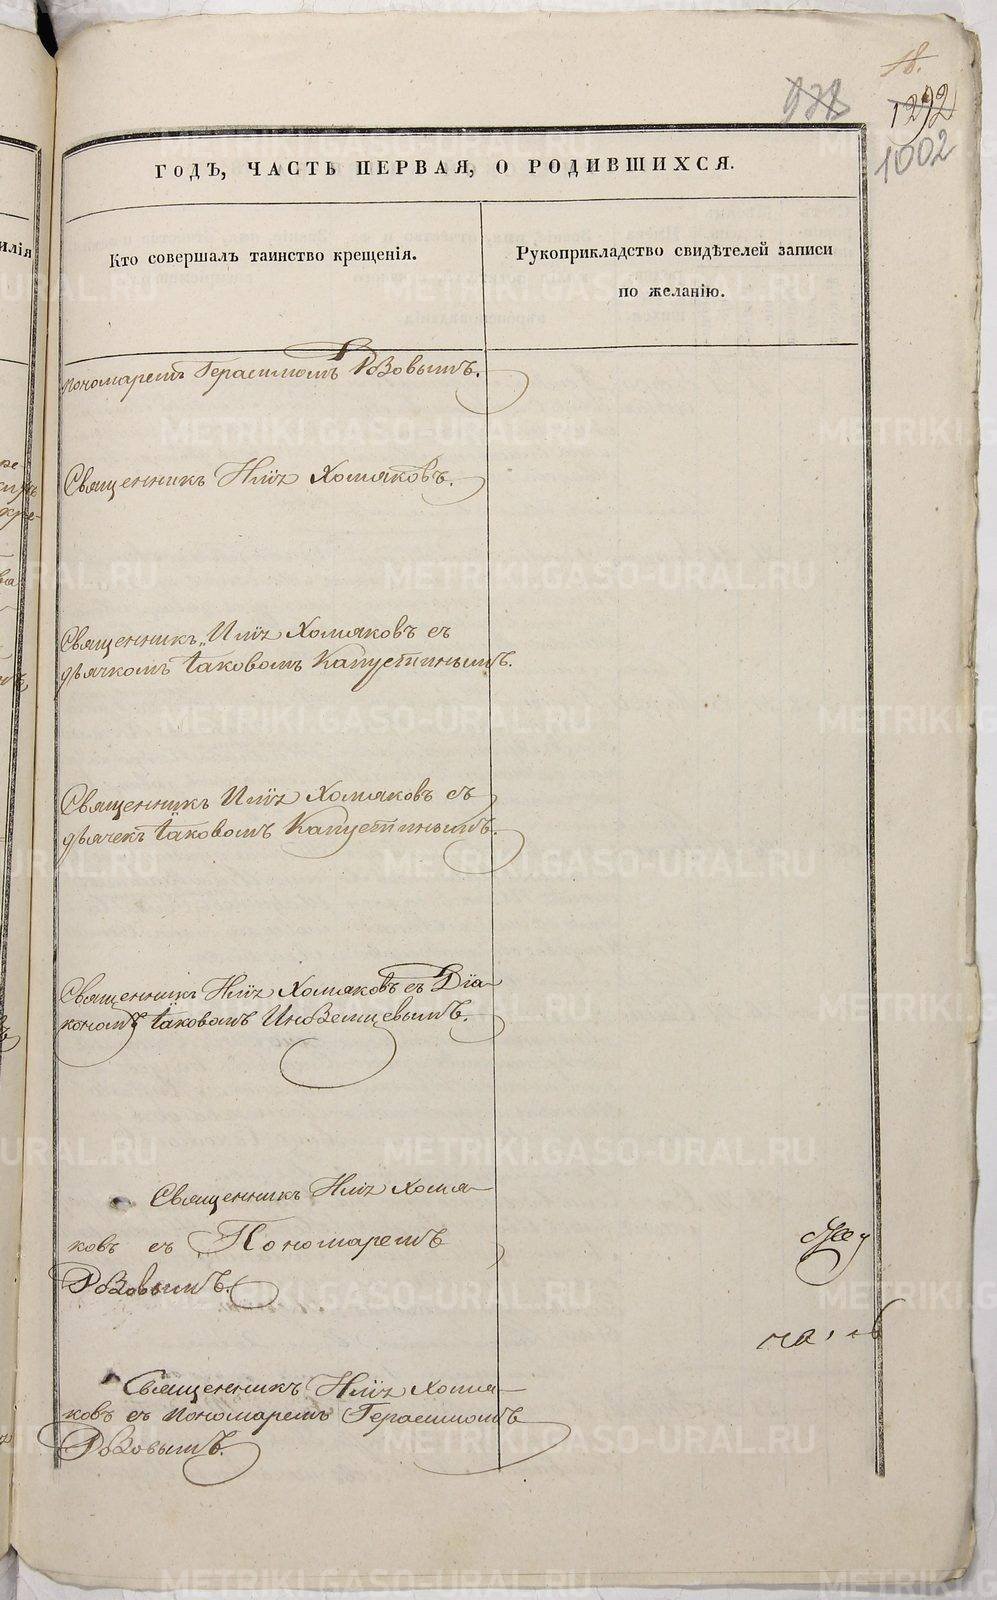 18.
938
1292
1002
ГОДЪ, ЧАСТЬ ПЕРВАЯ, О РОДИВШИХСЯ.
Кто совершалъ таинство крещенія.
Рукоприкладство свидѣтелей записи
по желанію.
илія
пономаремъ Герасимомъ Розовымъ.
Священникъ Иліа Хомяковъ.
Священникъ Иліа Хомяковъ съ
дьячкомъ Іаковомъ Капустинымъ.
Священникъ Иліа Хомяковъ съ
дьячек Іаковомъ Капустинымъ.
Священникъ Иліа Хомяковъ съ Діа
кономъ Іаковомъ Иноземцевымъ.
Священникъ Иліа Хомя
ковъ съ Пономаремъ
Розовымъ.
Священникъ Иліа Хомя
ковъ съ пономаремъ Герасимомъ
Розовымъ.
METRIKI.GASO-URAL.RU